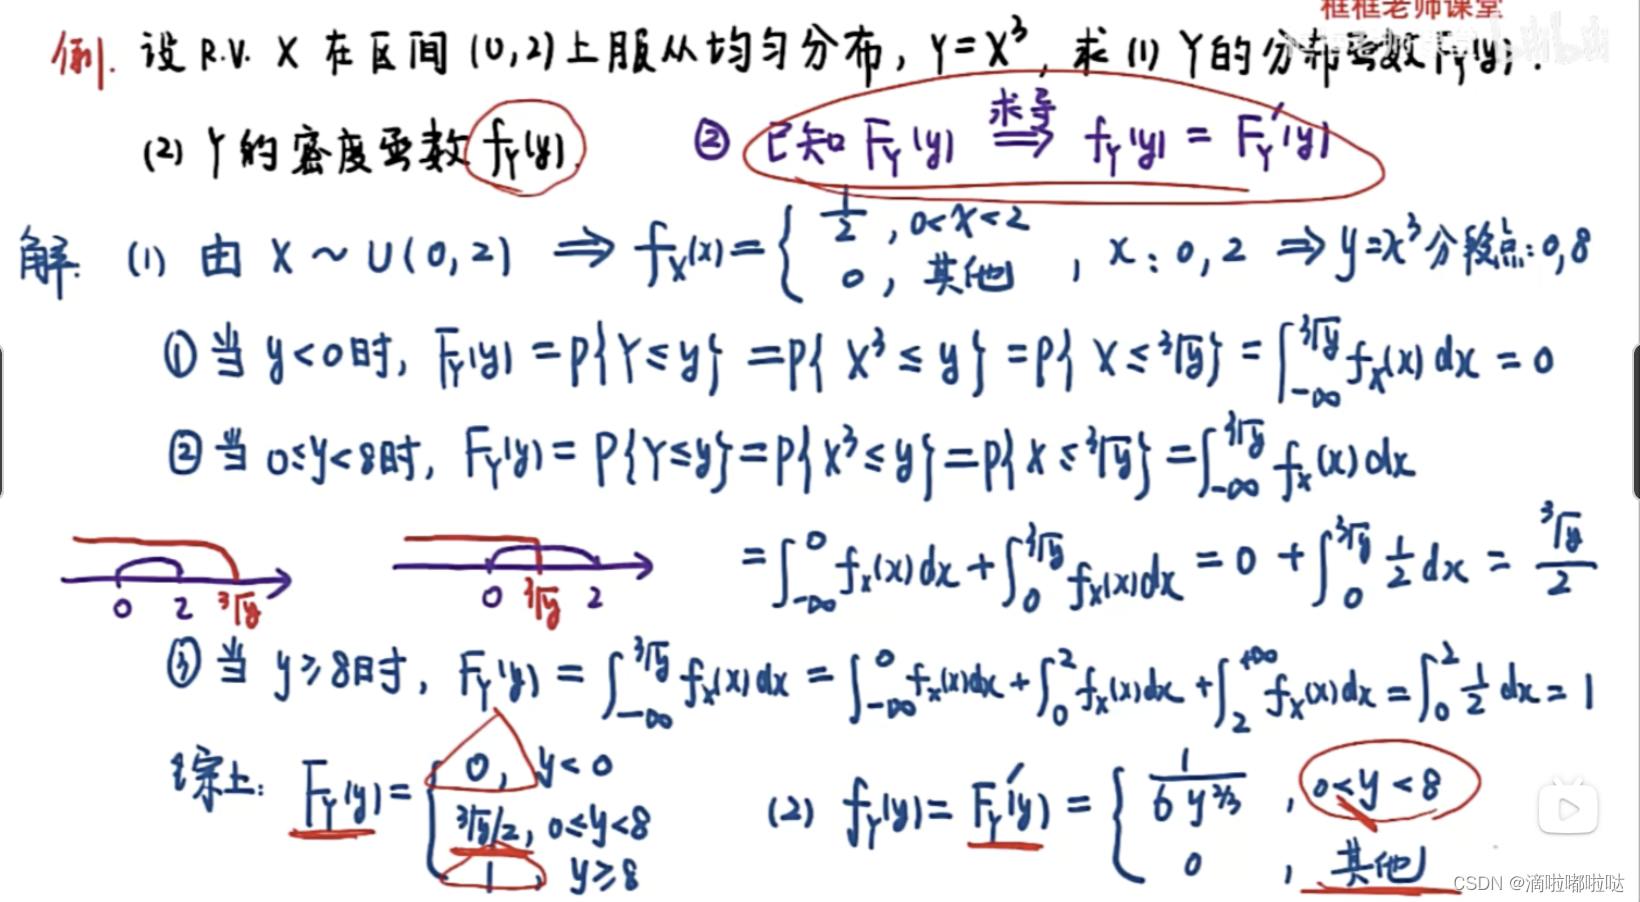 框框老师课堂
例. 设 R.V. X 在区间 (0,2) 上服从均匀分布, Y=X³, 求 (1) Y的分布函数 F_Y(y).
(2) Y的密度函数 f_Y(y). ② 已知 F_Y(y) 求导⟹ f_Y(y) = F_Y′(y)
解: (1) 由 X ~ U(0,2) ⟹ f_X(x) = { 1/2, 0<x<2 ; 0, 其他 , x: 0, 2 ⟹ y=x³ 分段点: 0,8
① 当 y<0时, F_Y(y) = P{Y≤y} = P{X³≤y} = P{X≤∛y} = ∫_{-∞}^{∛y} f_X(x)dx = 0
② 当 0≤y<8时, F_Y(y) = P{Y≤y} = P{X³≤y} = P{X≤∛y} = ∫_{-∞}^{∛y} f_X(x)dx
= ∫_{-∞}^{0} f_X(x)dx + ∫_{0}^{∛y} f_X(x)dx = 0 + ∫_{0}^{∛y} 1/2 dx = ∛y/2
0 2 ∛y 0 ∛y 2
③ 当 y≥8时, F_Y(y) = ∫_{-∞}^{∛y} f_X(x)dx = ∫_{-∞}^{0} f_X(x)dx + ∫_{0}^{2} f_X(x)dx + ∫_{2}^{+∞} f_X(x)dx = ∫_{0}^{2} 1/2 dx = 1
综上: F_Y(y) = { 0, y<0 ; ∛y/2, 0≤y<8 ; 1, y≥8
(2) f_Y(y) = F_Y′(y) = { 1/(6y^{2/3}), 0<y<8 ; 0, 其他
CSDN @滴啦嘟啦哒